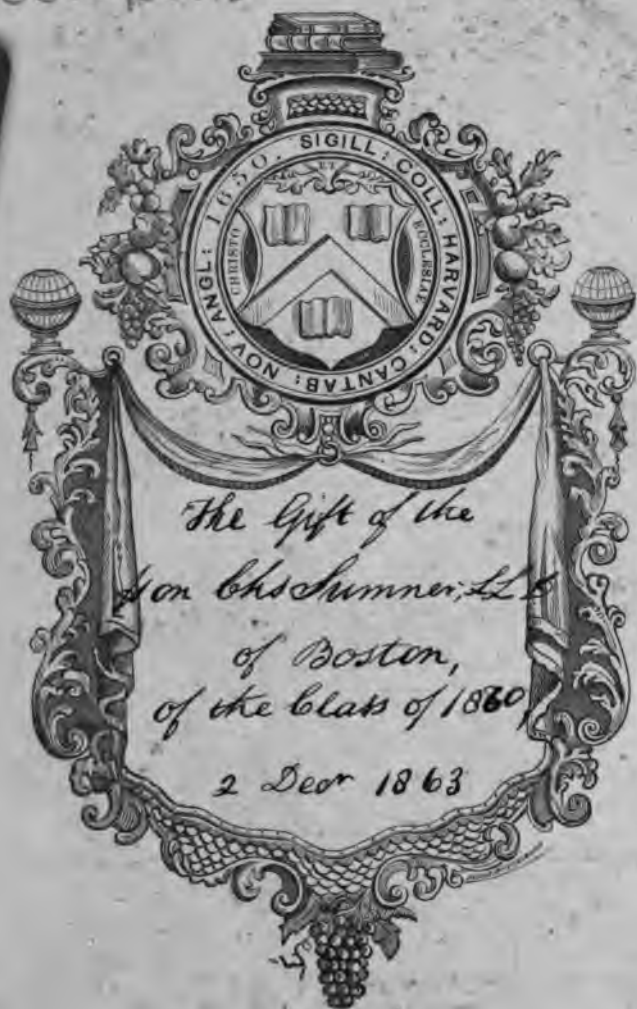 SIGILL: COLL: HARVARD: CANTAB: NOV: ANGL: 1650.
ET
CHRISTO
ECCLESIAE
The Gift of the
Hon Chs Sumner, LL
of Boston,
of the Class of 1860,
2 Decr 1863